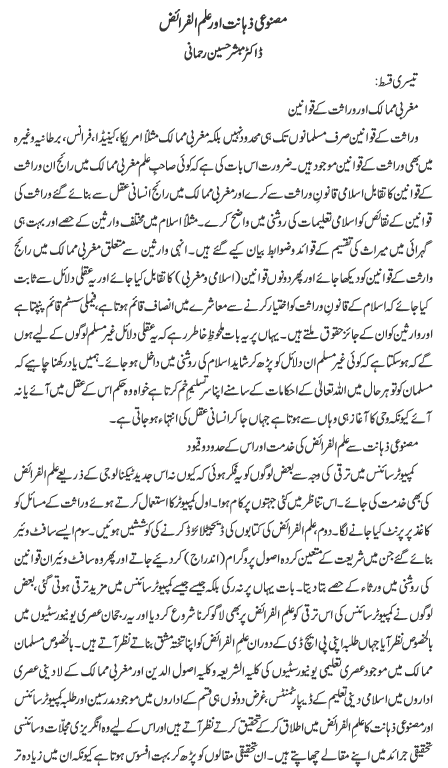 مصنوعی ذہانت اور علم الفرائض
ڈاکٹر مبشر حسین رحمانی
تیسری قسط:
مغربی ممالک اور وراثت کے قوانین
وراثت کے قوانین صرف مسلمانوں تک ہی محدود نہیں بلکہ مغربی ممالک مثلاً امریکا، کینیڈا، فرانس، برطانیہ وغیرہ
میں بھی وراثت کے قوانین موجود ہیں۔ ضرورت اس بات کی ہے کہ کوئی صاحبِ علم مغربی ممالک میں رائج ان وراثت
کے قوانین کا تقابل اسلامی قانونِ وراثت سے کرے اور مغربی ممالک میں رائج انسانی عقل سے بنائے گئے وراثت کی
قوانین کے نقائص کو اسلامی تعلیمات کی روشنی میں واضح کرے۔ مثلاً اسلام میں مختلف وارثین کے حصے اور بہت ہی
گہرائی میں میراث کی تقسیم کے قوائد و ضوابط بیان کیے گئے ہیں۔ انہی وارثین سے متعلق مغربی ممالک میں رائج
وارثت کے قوانین کو دیکھا جائے اور پھر دونوں قوانین (اسلامی و مغربی) کا تقابل کیا جائے اور یہ عقلی دلائل سے ثابت
کیا جائے کہ اسلام کے قانونِ وراثت کو اختیار کرنے سے معاشرے میں انصاف قائم ہوتا ہے، فیملی سسٹم قائم پنپتا ہے
اور وارثین کو ان کے جائز حقوق ملتے ہیں۔ یہاں پر یہ بات ملحوظِ خاطر رہے کہ یہ عقلی دلائل غیر مسلم لوگوں کے لیے ہوں
گے کہ ہوسکتا ہے کہ کوئی غیر مسلم ان دلائل کو پڑھ کر شاید اسلام کی روشنی میں داخل ہو جائے۔ ہمیں یاد رکھنا چاہیے کہ
مسلمان کو تو ہر حال میں اللہ تعالیٰ کے احکامات کے سامنے اپنا سر تسلیم خم کرنا ہے خواہ وہ حکم اس کے عقل میں آئے یا نہ
آئے کیونکہ وحی کا آغاز ہی وہاں سے ہوتا ہے جہاں جا کر انسانی عقل کی انتہاء ہو جاتی ہے۔
مصنوعی ذہانت سے علم الفرائض کی خدمت اور اس کے حدود و قیود
کمپیوٹر سائنس میں ترقی کی وجہ سے بعض لوگوں کو یہ فکر ہوئی کہ کیوں نہ اس جدید ٹیکنالوجی کے ذریعے علم الفرائض
کی بھی خدمت کی جائے۔ اس تناظر میں کئی جہتوں پر کام ہوا۔ اول کمپیوٹر کا استعمال کرتے ہوئے وراثت کے مسائل کو
کاغذ پر پرنٹ کیا جانے لگا۔ دوم، علم الفرائض کی کتابوں کی ڈیجیٹلائزڈ کرنے کی کوششیں ہوئیں۔ سوم ایسے سافٹ وئیر
بنائے گئے جن میں شریعت کے متعین کردہ اصول پروگرام (اندراج) کر دیئے جاتے اور پھر وہ سافٹ وئیر ان قوانین
کی روشنی میں ورثاء کے حصے بتا دیتا۔ بات یہاں پر نہ رکی بلکہ جیسے جیسے کمپیوٹر سائنس میں مزید ترقی ہوتی گئی، بعض
لوگوں نے کمپیوٹر سائنس کی اس ترقی کو علم الفرائض پر بھی لاگو کرنا شروع کر دیا اور یہ رجحان عصری یونیورسٹیوں میں
بالخصوص نظر آیا جہاں طلبہ اپنی پی ایچ ڈی کے دوران علم الفرائض کو اپنا تختۂ مشق بناتے نظر آتے ہیں۔ بالخصوص مسلمان
ممالک میں موجود عصری تعلیمی یونیورسٹیوں کی کلیہ الشریعہ و کلیہ اصول الدین اور مغربی ممالک کے لادینی عصری
اداروں میں اسلامی دینی تعلیم کے ڈیپارٹمنٹس، غرض دونوں ہی قسم کے اداروں میں موجود مدرسین اور طلبہ کمپیوٹر سائنس
اور مصنوعی ذہانت کا علم الفرائض میں اطلاق کر کے تحقیق کرتے نظر آتے ہیں اور اس کے لیے وہ انگریزی مجلّات و سائنسی
تحقیقی جرائد میں اپنے مقالے چھاپتے ہیں۔ ان تحقیقی مقالوں کو پڑھ کر بہت افسوس ہوتا ہے کیونکہ ان میں زیادہ تر